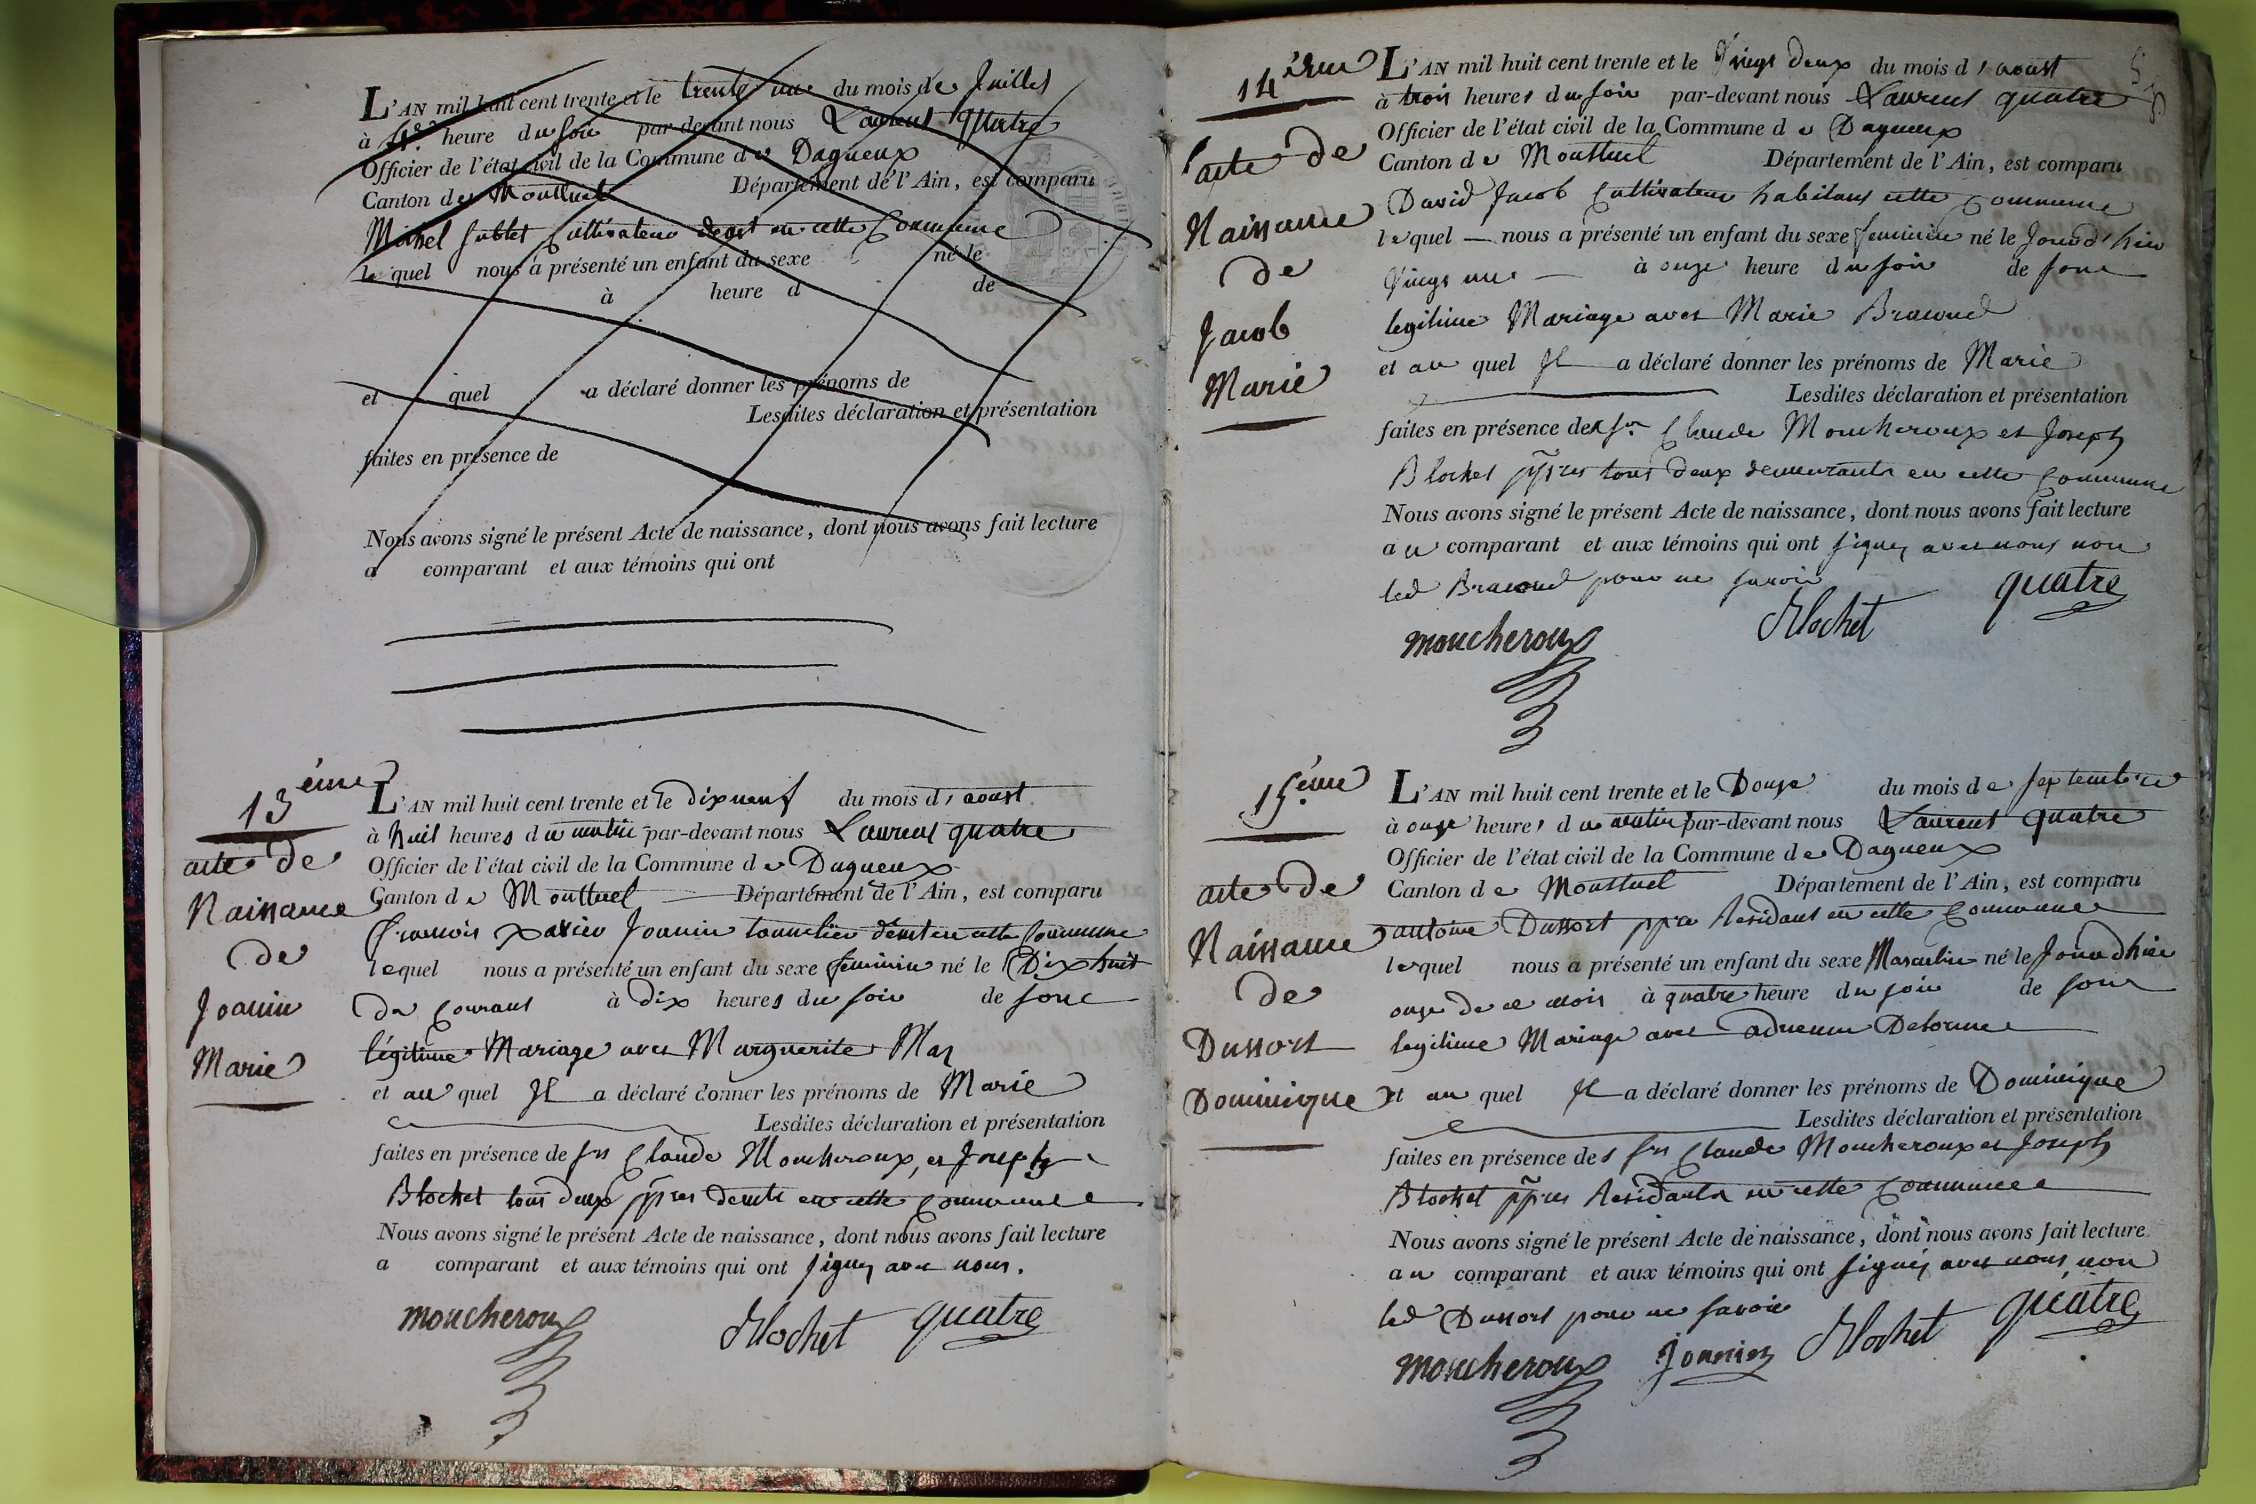 L'AN mil huit cent trente et le trente une du mois de Juillet
à 4 heure du soir par-devant nous Laurent quatre
Officier de l'état civil de la Commune de Dagneux
Canton de Montluel Département de l'Ain, est comparu
Michel Sublet Cultivateur demt en cette Commune
le quel nous a présenté un enfant du sexe né le
à heure d de
et quel a déclaré donner les prénoms de
Lesdites déclaration et présentation
faites en présence de
Nous avons signé le présent Acte de naissance, dont nous avons fait lecture
a comparant et aux témoins qui ont
13ème
acte de
Naissance
de
Joanin
Marie
L'AN mil huit cent trente et le dixneuf du mois d'aoust
à huit heures du matin par-devant nous Laurent quatre
Officier de l'état civil de la Commune de Dagneux
Canton de Montluel Département de l'Ain, est comparu
françois xavier Joanin tonnelier demt en cette Commune
lequel nous a présenté un enfant du sexe feminin né le Dix huit
du Courant à dix heures du soir de son
légitime Mariage avec Marguerite Mas
et au quel Jl a déclaré donner les prénoms de Marie
Lesdites déclaration et présentation
faites en présence de srs Claude Moucheroux, et Joseph
Blochet tous deux ppres demts en cette Commune
Nous avons signé le présent Acte de naissance, dont nous avons fait lecture
a comparant et aux témoins qui ont signez avec nous.
moucheroux Blochet quatre
14ème
l'acte de
Naissance
de
Jacob
Marie
L'AN mil huit cent trente et le Vingt deux du mois d'aoust
à trois heures du soir par-devant nous Laurent quatre
Officier de l'état civil de la Commune de Dagneux
Canton de Montluel Département de l'Ain, est comparu
David Jacob Cultivateur habitant cette Commune
lequel nous a présenté un enfant du sexe feminin né le Jour d'hier
Vingt une à onze heure du soir de son
legitime Mariage avec Marie Bracoud
et au quel Jl a déclaré donner les prénoms de Marie
Lesdites déclaration et présentation
faites en présence des sr Claude Moucheroux et Joseph
Blochet ppres tous deux demeurants en cette Commune
Nous avons signé le présent Acte de naissance, dont nous avons fait lecture
au comparant et aux témoins qui ont signez avec nous non
led Bracoud pour ne savoir
moucheroux Blochet quatre
15ème
acte de
Naissance
de
Dussort
Dominique
L'AN mil huit cent trente et le Douze du mois de septembre
à onze heures du matin par-devant nous Laurent quatre
Officier de l'état civil de la Commune de Dagneux
Canton de Montluel Département de l'Ain, est comparu
antoine Dussort ppre Residant en cette Commune
lequel nous a présenté un enfant du sexe Masculin né le Jour dhier
onze de ce mois à quatre heure du soir de son
legitime Mariage avec
et au quel Jl a déclaré donner les prénoms de Dominique
Lesdites déclaration et présentation
faites en présence des srs Claude Moucheroux et Joseph
Blochet ppres Residants en cette Commune
Nous avons signé le présent Acte de naissance, dont nous avons fait lecture
au comparant et aux témoins qui ont signés avec nous non
led Dussort pour ne savoir
moucheroux Blochet quatre